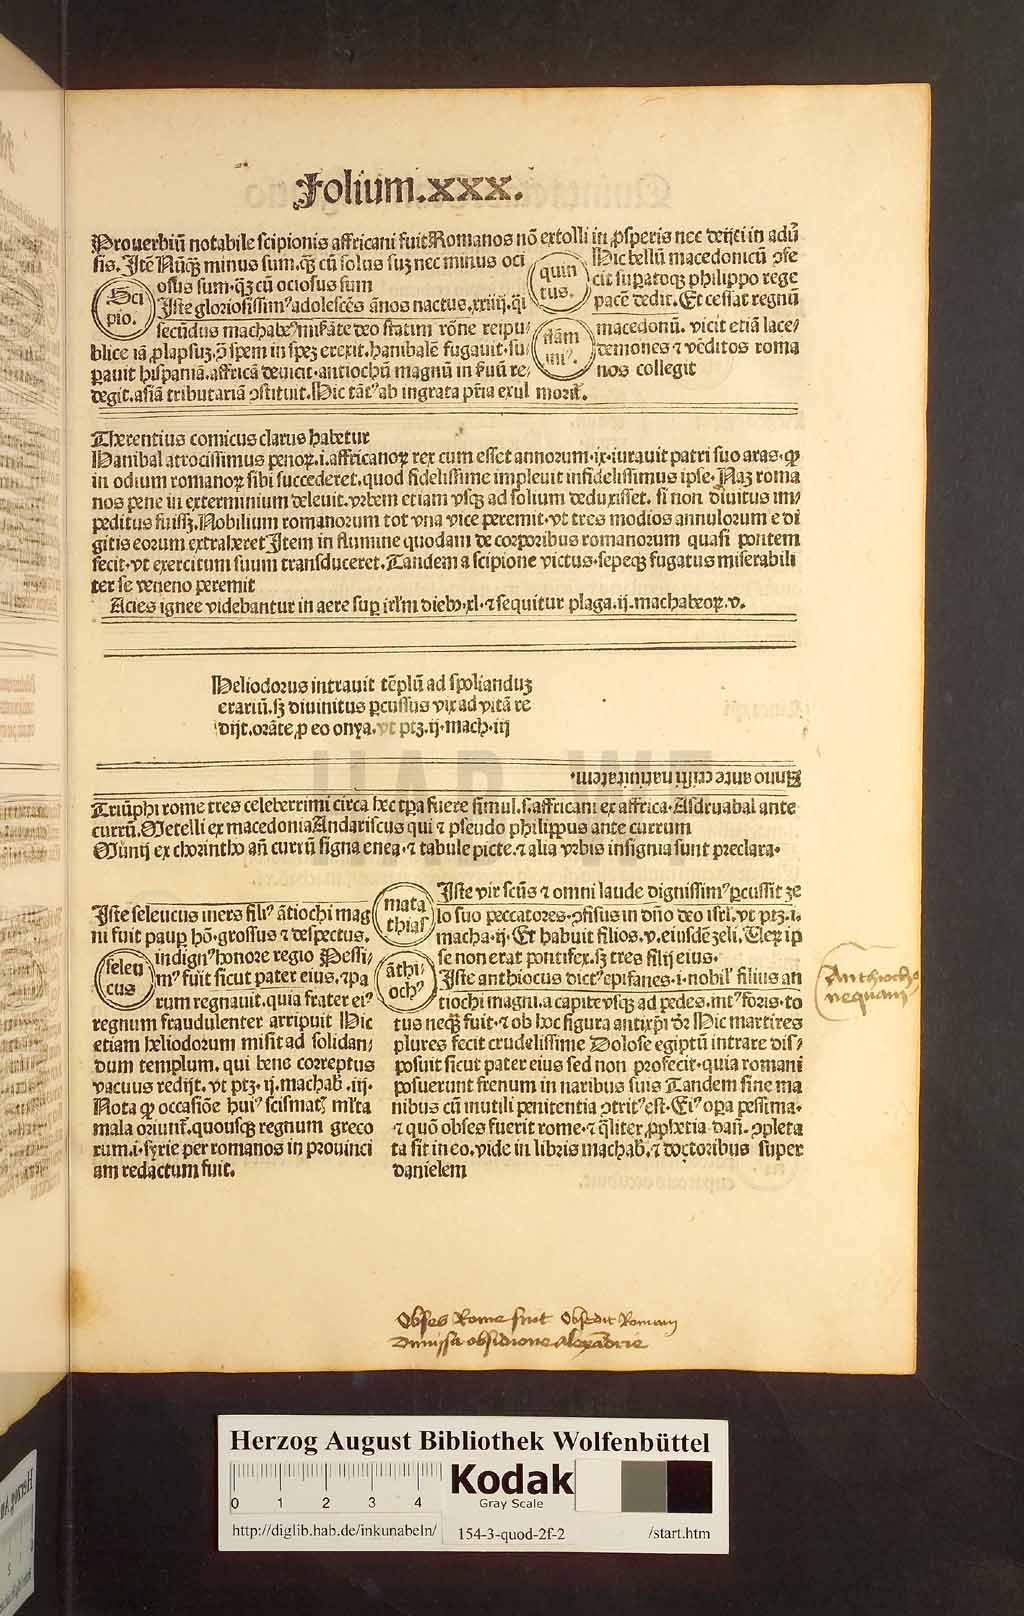 Folium.xxx.
Prouerbiū notabile scipionis affricani fuit Romanos nō extolli in ꝓsperis nec deijci in aduͤ
sis. Itē Nūqꝫ minus sum. qꝫ cū solus suꝫ nec minus oci
osus sum. qꝫ cū ociosus sum
Sci
pio.
Iste gloriosissimꝰ adolescēs ānos nactus. xxiiij. qi
secūdus machabeꝰ militāte deo statim rōne reipu⸗
blice iā ꝓlapsuꝫ. ꝑ spem in speꝫ erexit. hanibalē fugauit. su⸗
ꝑauit hispaniā. affricā deuicit. antiochū magnū in fuū re⸗
degit. asiā tributariā ꝯstituit. Hic tātꝰ ab ingrata pr̄ia exul morit̄.
quin
tus.
flām
iniꝰ.
Hic bellū macedonicū ꝯfe
cit supatoqꝫ philippo rege
pacē dedit. Et cessat regnū
macedonū. vicit etiā lace⸗
demones ⁊ vēditos roma
nos collegit
Therentius comicus clarus habetur
Hanibal atrocissimus penoꝝ. i. affricanoꝝ rex cum esset annorum. ix. iurauit patri suo aras. ꝙ
in odium romanoꝝ sibi succederet. quod fidelissime impleuit infidelissimus ipse. Naꝫ roma
nos pene in exterminium deleuit. vrbem etiam vsqꝫ ad solium deduxisset. si non diuitus im⸗
peditus fuissꝫ. Nobilium romanorum tot vna vice peremit. vt tres modios annulorum e di
gitis eorum extraheret Item in flumine quodam de corporibus romanorum quasi pontem
fecit. vt exercitum suum transduceret. Tandem a scipione victus. sepeqꝫ fugatus miserabili
ter se veneno peremit
Acies ignee videbantur in aere suꝑ irl'm diebꝫ. xl. ⁊ sequitur plaga. ij. machabeoꝝ. v.
Heliodorus intrauit tēplū ad spolianduꝫ
erariū. sꝫ diuinitus ꝑcussus vix ad vitā re
dijt. orāte ꝓ eo onya. vt ptꝫ. ij. mach. iij
Anno ante cristi natiuitatem.
Triūphi rome tres celeberrimi circa hec tp̄a fuere simul. s. affricani ex affrica. Asdruabal ante
currū. Metelli ex macedonia Andariscus qui ⁊ pseudo philippus ante currum
Munij ex chorintho an̄ currū signa enea. ⁊ tabule picte. ⁊ alia vrbis insignia sunt preclara.
Iste seleucus iners filiꝰ ātiochi mag
ni fuit pauꝑ hō. grossus ⁊ despectus.
seleu
cus
indignꝰ honore regio Pessi⸗
mꝰ fuit sicut pater eius. ⁊ pa
rum regnauit. quia frater eiꝰ
regnum fraudulenter arripuit Hic
etiam heliodorum misit ad solidan⸗
dum templum. qui bene correptus
vacuus redijt. vt ptꝫ. ij. machab̄. iij.
Nota ꝙ occasiōe huiꝰ scismatꝭ ml'ta
mala oriunt̄. quousqꝫ regnum greco
rum. i. syrie per romanos in prouinci
am redactum fuit.
mata
thias
Iste vir scūs ⁊ omni laude dignissimꝰ ꝑcussit ze
lo suo peccatores. ꝯfisus in dn̄o deo isrl. vt ptꝫ. i.
macha. ij. Et habuit filios. v. eiusdē zeli. Ueꝝ ip
se non erat pontifex. sꝫ tres filij eius.
āthi⸗
ochꝰ
Iste anthiocus dictꝰ epifanes. i. nobil' filius an
tiochi magni. a capite vsqꝫ ad pedes. intꝰ foris. to
tus neqꝫ fuit. ⁊ ob hoc figura antixp̄i dr̄ Hic martires
plures fecit crudelissime Dolose egiptū intrare dis⸗
posuit sicut pater eius sed non profecit. quia romani
posuerunt frenum in naribus suis Tandem sine ma
nibus cū inutili penitentia ꝯtritꝰ est. Eiꝰ oꝑa pessima.
⁊ quō obses fuerit rome. ⁊ qliter ꝓphetia dan̄. ꝯpleta
ta sit in eo. vide in libris machab̄. ⁊ doctoribus super
danielem
Anthiochꝰ
nequam
Obses Rome fuit Obsedit Romam
Dimissa obsidione Alexādrie
HAB WF
Herzog August Bibliothek Wolfenbüttel
0 1 2 3 4
Kodak
Gray Scale
http://diglib.hab.de/inkunabeln/ 154-3-quod-2f-2 /start.htm